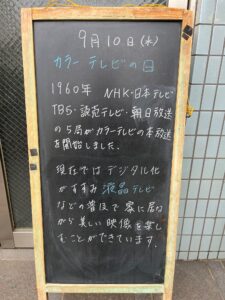 9月10日(水)
カラーテレビの日
1960年 NHK・日本テレビ
TBS・読売テレビ・朝日放送
の5局がカラーテレビの本放送
を開始しました。
現在ではデジタル化
がすすみ 液晶テレビ
などの普及で 家に居な
がら美しい映像を楽し
むことができています.